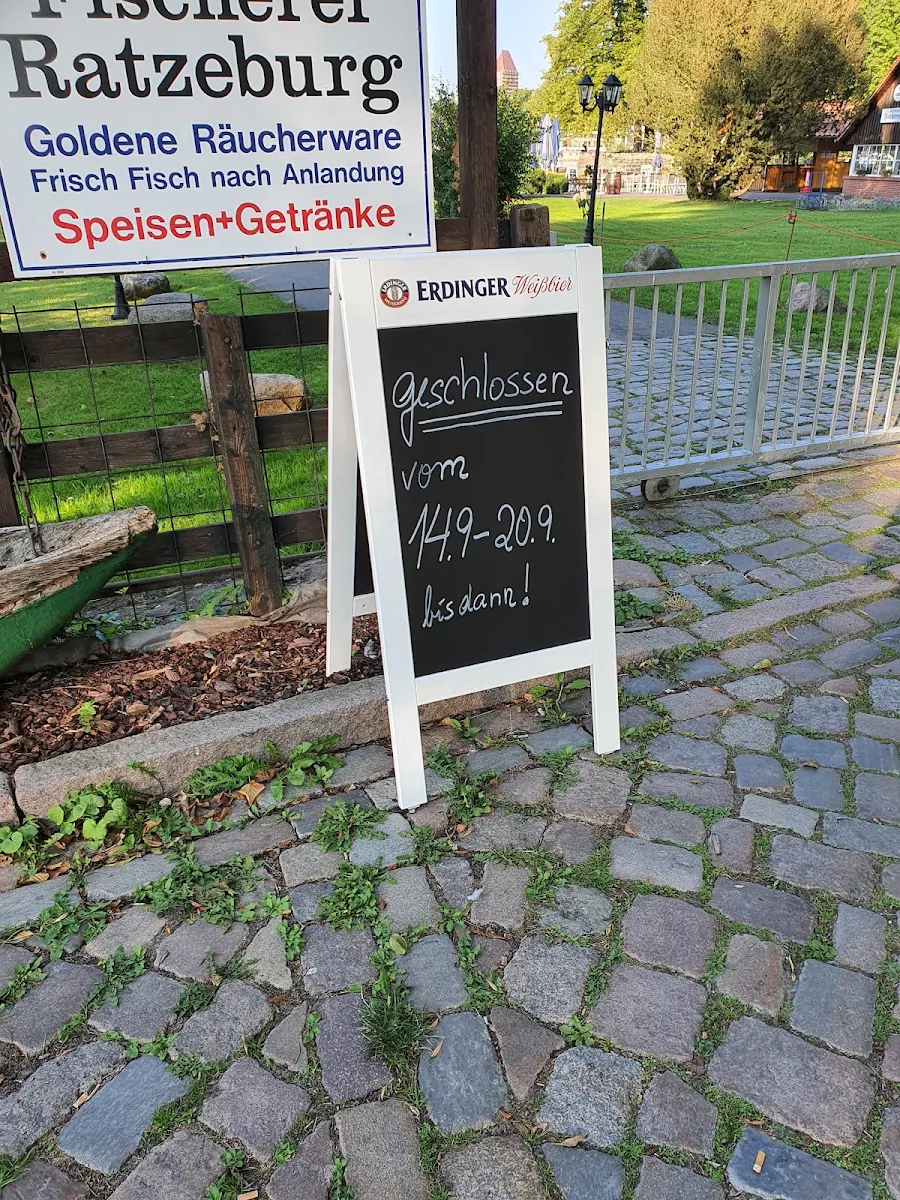 Fischerei
Ratzeburg
Goldene Räucherware
Frisch Fisch nach Anlandung
Speisen+Getränke
ERDINGER Weißbier
geschlossen
vom
14.9-20.9.
bis dann!